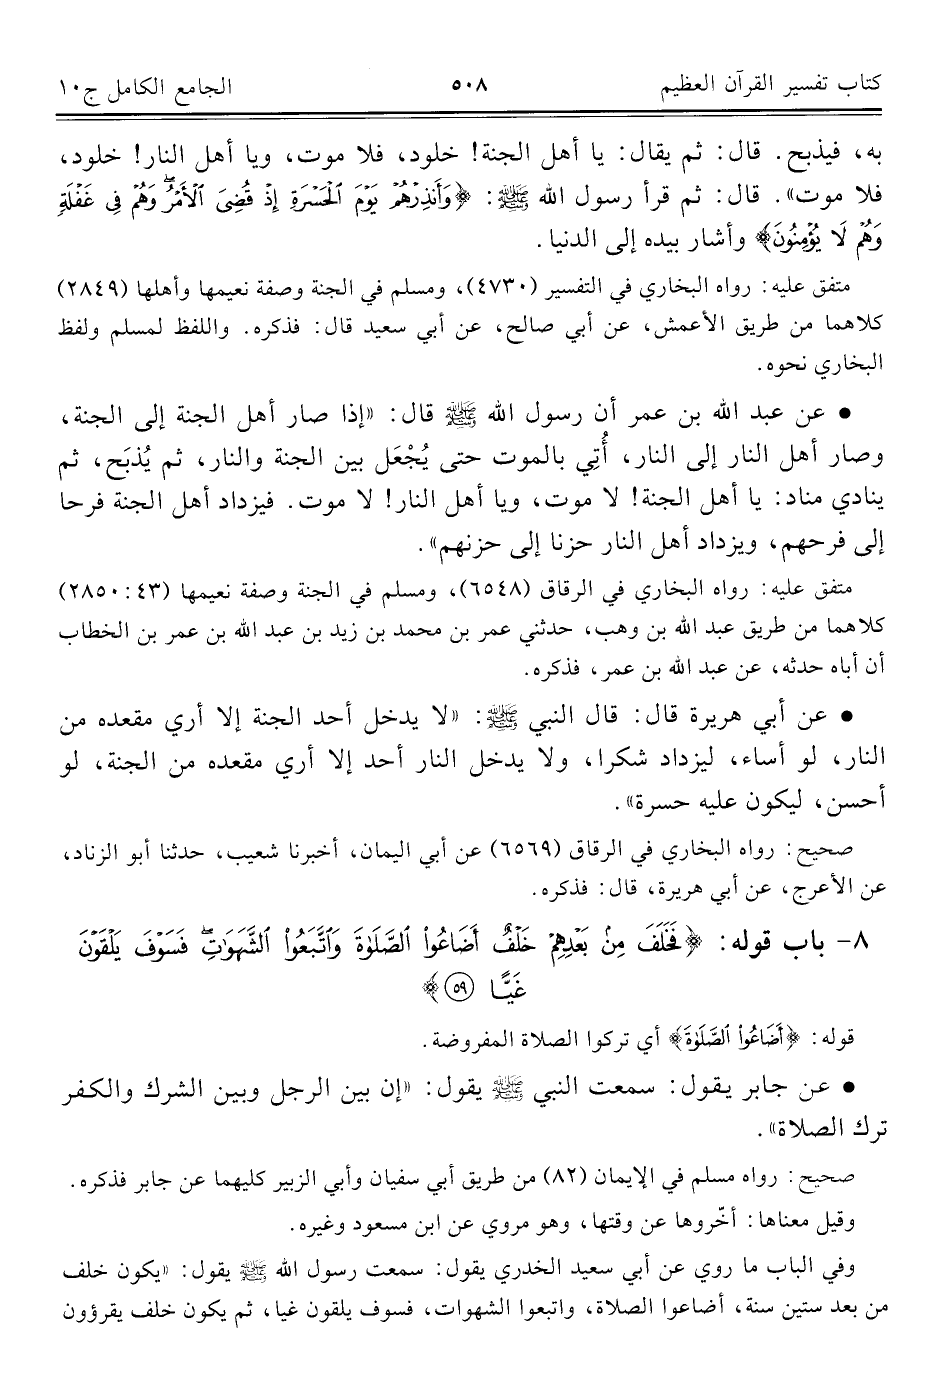 كتاب تفسير القرآن العظيم ٥٠٨ الجامع الكامل ج١٠
به، فيذبح. قال: ثم يقال: يا أهل الجنة! خلود، فلا موت، ويا أهل النار! خلود،
فلا موت». قال: ثم قرأ رسول الله ﷺ: ﴿وَأَنذِرْهُمْ يَوْمَ ٱلْحَسْرَةِ إِذْ قُضِىَ ٱلْأَمْرُ وَهُمْ فِى غَفْلَةٍ
وَهُمْ لَا يُؤْمِنُونَ﴾ وأشار بيده إلى الدنيا.
متفق عليه: رواه البخاري في التفسير (٤٧٣٠)، ومسلم في الجنة وصفة نعيمها وأهلها (٢٨٤٩)
كلاهما من طريق الأعمش، عن أبي صالح، عن أبي سعيد قال: فذكره. واللفظ لمسلم ولفظ
البخاري نحوه.
• عن عبد الله بن عمر أن رسول الله ﷺ قال: «إذا صار أهل الجنة إلى الجنة،
وصار أهل النار إلى النار، أُتِي بالموت حتى يُجْعَل بين الجنة والنار، ثم يُذبَح، ثم
ينادي مناد: يا أهل الجنة! لا موت، ويا أهل النار! لا موت. فيزداد أهل الجنة فرحا
إلى فرحهم، ويزداد أهل النار حزنا إلى حزنهم».
متفق عليه: رواه البخاري في الرقاق (٦٥٤٨)، ومسلم في الجنة وصفة نعيمها (٤٣: ٢٨٥٠)
كلاهما من طريق عبد الله بن وهب، حدثني عمر بن محمد بن زيد بن عبد الله بن عمر بن الخطاب
أن أباه حدثه، عن عبد الله بن عمر، فذكره.
• عن أبي هريرة قال: قال النبي ﷺ: «لا يدخل أحد الجنة إلا أري مقعده من
النار، لو أساء، ليزداد شكرا، ولا يدخل النار أحد إلا أري مقعده من الجنة، لو
أحسن، ليكون عليه حسرة».
صحيح: رواه البخاري في الرقاق (٦٥٦٩) عن أبي اليمان، أخبرنا شعيب، حدثنا أبو الزناد،
عن الأعرج، عن أبي هريرة، قال: فذكره.
٨- باب قوله: ﴿فَخَلَفَ مِنۢ بَعْدِهِمْ خَلْفٌ أَضَاعُوا۟ ٱلصَّلَوٰةَ وَٱتَّبَعُوا۟ ٱلشَّهَوَٰتِ ۖ فَسَوْفَ يَلْقَوْنَ
غَيًّا ٥٩﴾
قوله: ﴿أَضَاعُوا۟ ٱلصَّلَوٰةَ﴾ أي تركوا الصلاة المفروضة.
• عن جابر يقول: سمعت النبي ﷺ يقول: «إن بين الرجل وبين الشرك والكفر
ترك الصلاة».
صحيح: رواه مسلم في الإيمان (٨٢) من طريق أبي سفيان وأبي الزبير كليهما عن جابر فذكره.
وقيل معناها: أخّروها عن وقتها، وهو مروي عن ابن مسعود وغيره.
وفي الباب ما روي عن أبي سعيد الخدري يقول: سمعت رسول الله ﷺ يقول: «يكون خلف
من بعد ستين سنة، أضاعوا الصلاة، واتبعوا الشهوات، فسوف يلقون غيا، ثم يكون خلف يقرؤون